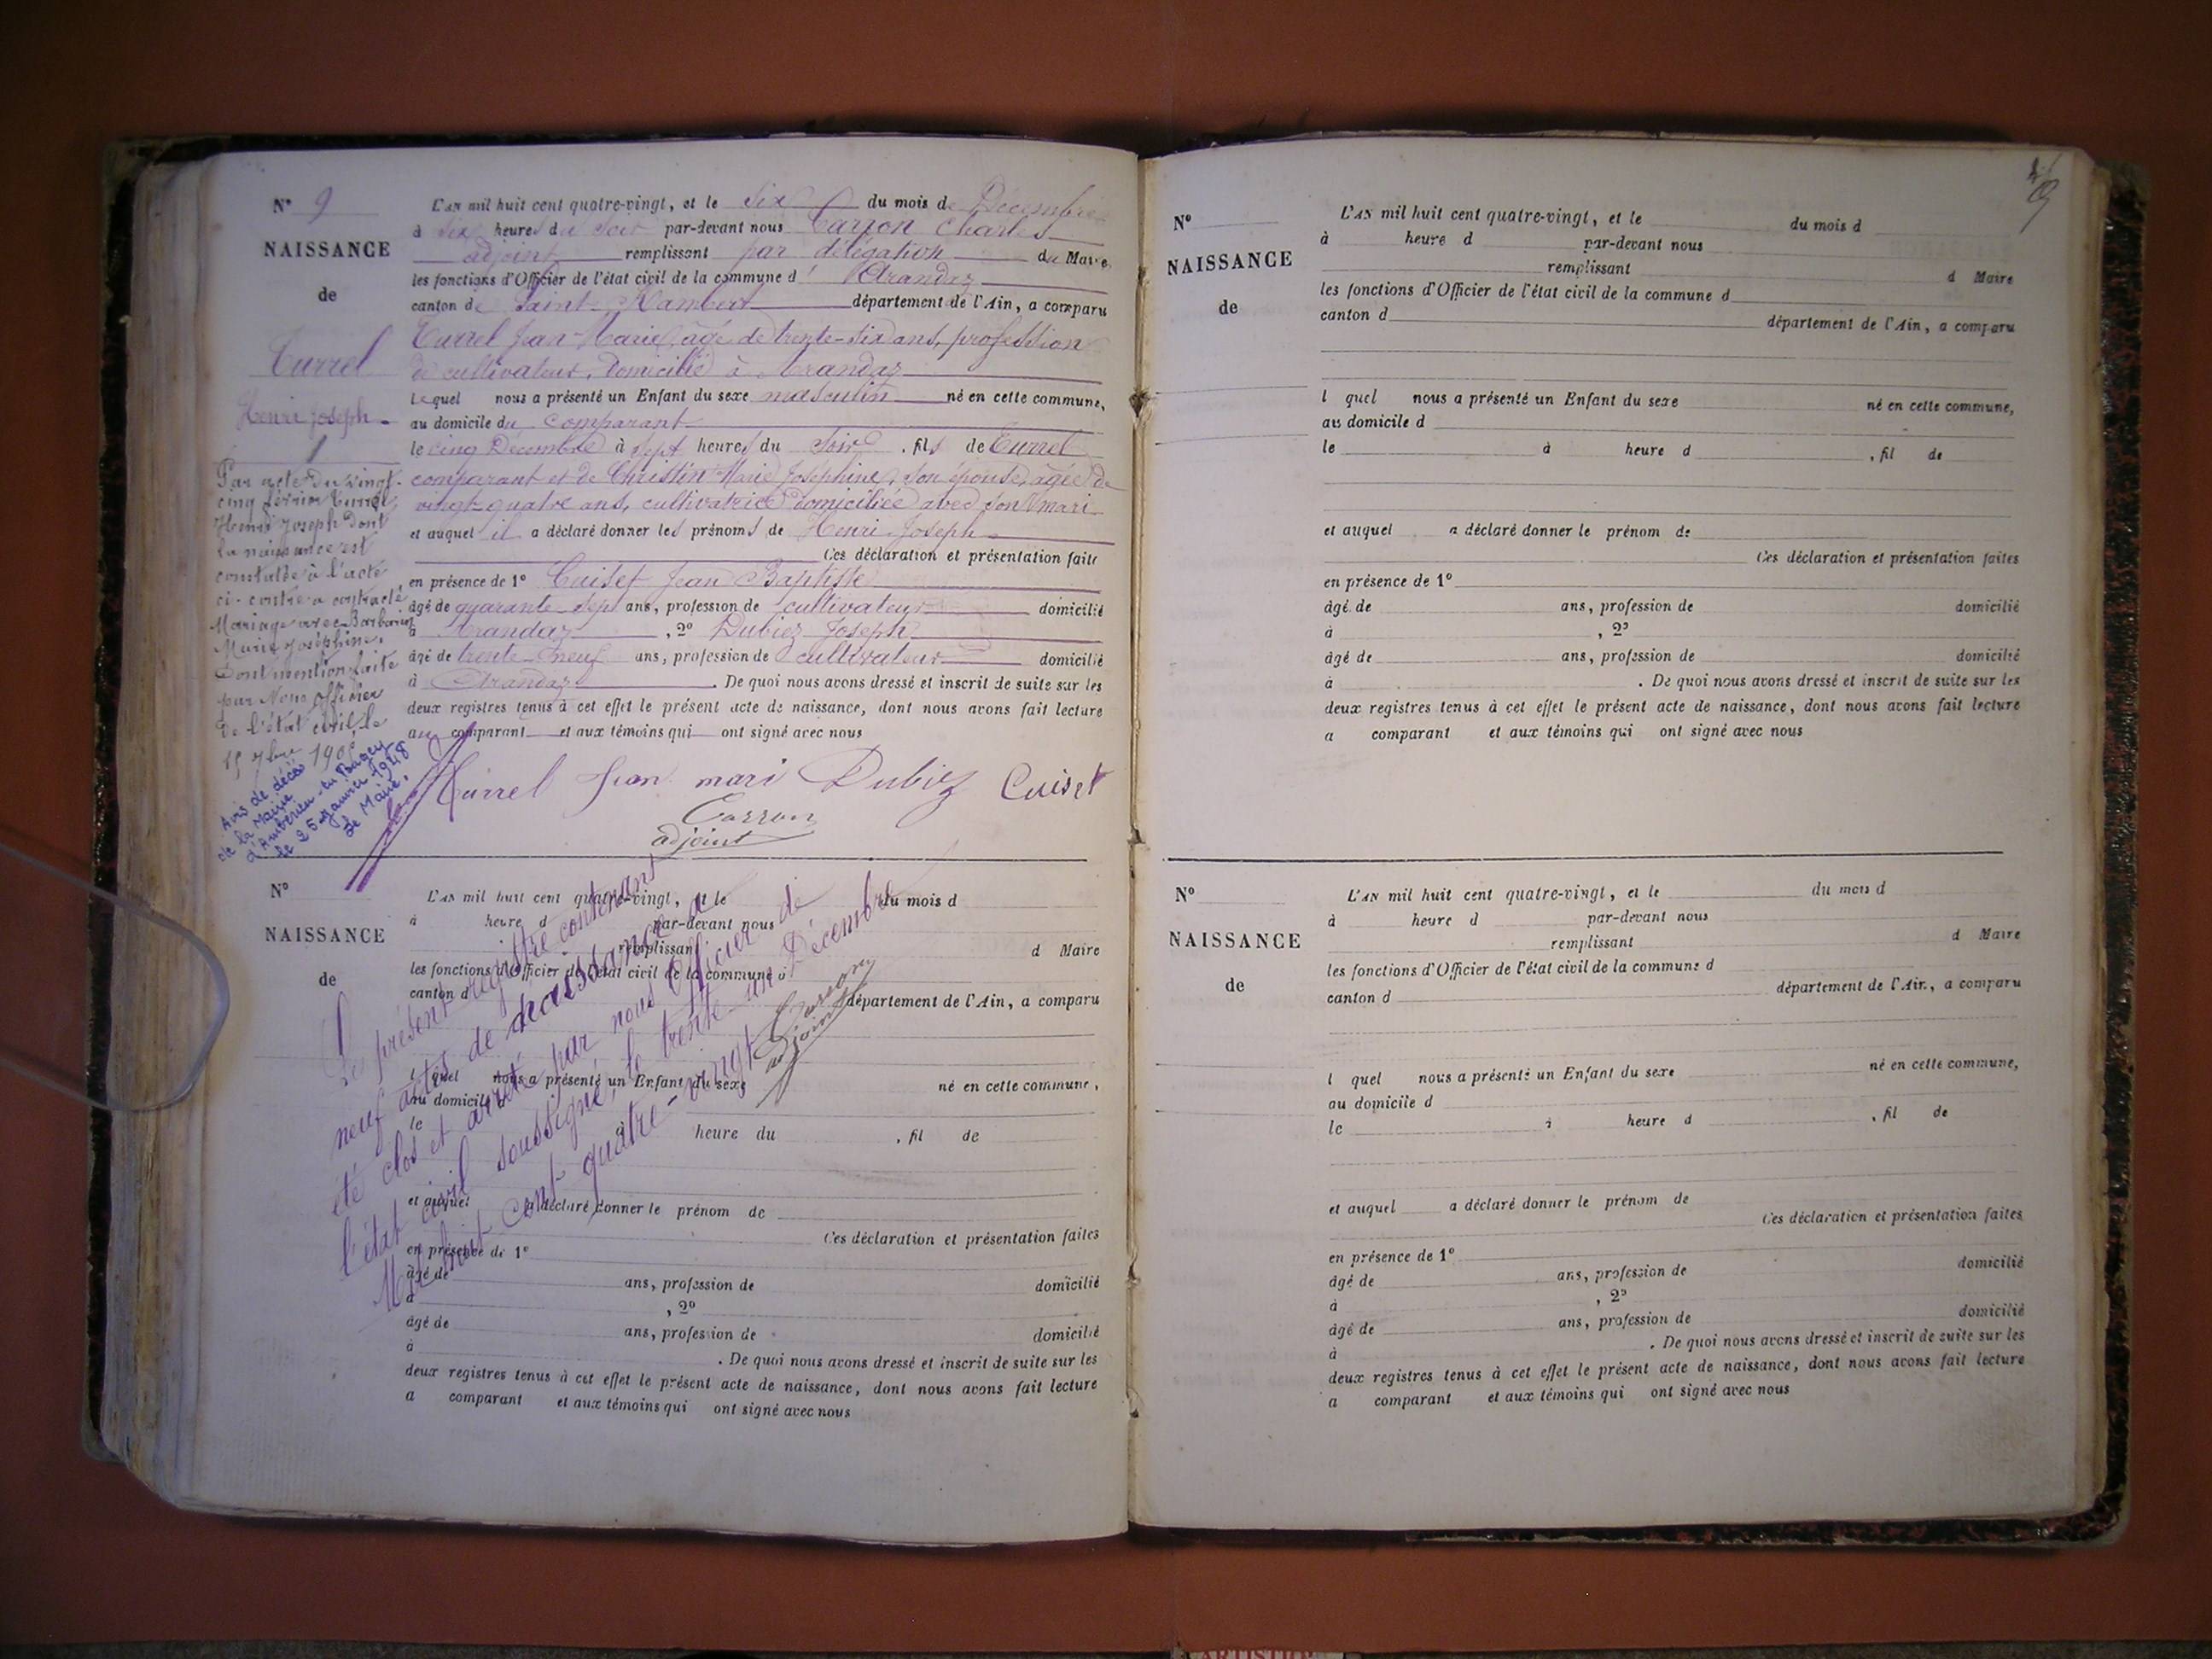 N° 9
NAISSANCE
de
Turrel
Henri Joseph
L'AN mil huit cent quatre-vingt, et le six du mois de Décembre
à six heures du soir par-devant nous Carron Charles
adjoint remplissant par délégation du Maire
les fonctions d'Officier de l'état civil de la commune d' Arandaz
canton de Saint-Rambert département de l'Ain, a comparu
Turrel Jean-Marie, âgé de trente-six ans, profession
de cultivateur, domicilié à Arandaz
Lequel nous a présenté un Enfant du sexe masculin né en cette commune,
au domicile du comparant
le cinq Décembre à sept heures du soir, fils de Turrel
comparant et de Christin Marie Joséphine, son épouse, âgée de
vingt-quatre ans, cultivatrice domiciliée avec son mari
et auquel il a déclaré donner les prénoms de Henri Joseph
Ces déclaration et présentation faite
en présence de 1° Cuiset Jean Baptiste
âgé de quarante-sept ans, profession de cultivateur domicilié
à Arandaz, 2° Dubiez Joseph
âgé de trente-neuf ans, profession de cultivateur domicilié
à Arandaz. De quoi nous avons dressé et inscrit de suite sur les
deux registres tenus à cet effet le présent acte de naissance, dont nous avons fait lecture
au comparant et aux témoins qui ont signé avec nous
Turrel Jean mari Dubiez Cuiset
Carron
adjoint
Par acte du vingt-
cinq février Turrel
Henri Joseph dont
la naissance est
constatée à l'acte
ci-contre a contracté
Mariage avec Barbarin
Marie Joséphine.
Dont mention faite
par Nous Officier
de l'état civil le
15 7bre
Avis de décès
de la Mairie
d'Ambérieu-en-Bugey
le 25 janvier 1948
Le Maire,
N°
NAISSANCE
de
L'AN mil huit cent quatre-vingt, et le du mois d
à heure d par-devant nous
remplissant d Maire
les fonctions d'Officier de l'état civil de la commune d
canton d département de l'Ain, a comparu
l quel nous a présenté un Enfant du sexe né en cette commune,
au domicile d
le à heure du , fil de
et auquel a déclaré donner le prénom de
Ces déclaration et présentation faites
en présence de 1°
âgé de ans, profession de domicilié
à , 2°
âgé de ans, profession de domicilié
à . De quoi nous avons dressé et inscrit de suite sur les
deux registres tenus à cet effet le présent acte de naissance, dont nous avons fait lecture
a comparant et aux témoins qui ont signé avec nous
Le présent registre contenant
neuf actes de naissance a
été clos et arrêté par nous Officier de
l'état civil soussigné, le trente-un Décembre
Mil huit cent quatre-vingt
Carron
adjoint
N°
NAISSANCE
de
L'AN mil huit cent quatre-vingt, et le du mois d
à heure d par-devant nous
remplissant d Maire
les fonctions d'Officier de l'état civil de la commune d
canton d département de l'Ain, a comparu
l quel nous a présenté un Enfant du sexe né en cette commune,
au domicile d
le à heure d , fil de
et auquel a déclaré donner le prénom de
Ces déclaration et présentation faites
en présence de 1°
âgé de ans, profession de domicilié
à , 2°
âgé de ans, profession de domicilié
à . De quoi nous avons dressé et inscrit de suite sur les
deux registres tenus à cet effet le présent acte de naissance, dont nous avons fait lecture
a comparant et aux témoins qui ont signé avec nous
N°
NAISSANCE
de
L'AN mil huit cent quatre-vingt, et le du mois d
à heure d par-devant nous
remplissant d Maire
les fonctions d'Officier de l'état civil de la commune d
canton d département de l'Ain, a comparu
l quel nous a présenté un Enfant du sexe né en cette commune,
au domicile d
le à heure d , fil de
et auquel a déclaré donner le prénom de
Ces déclaration et présentation faites
en présence de 1°
âgé de ans, profession de domicilié
à , 2°
âgé de ans, profession de domicilié
à . De quoi nous avons dressé et inscrit de suite sur les
deux registres tenus à cet effet le présent acte de naissance, dont nous avons fait lecture
a comparant et aux témoins qui ont signé avec nous